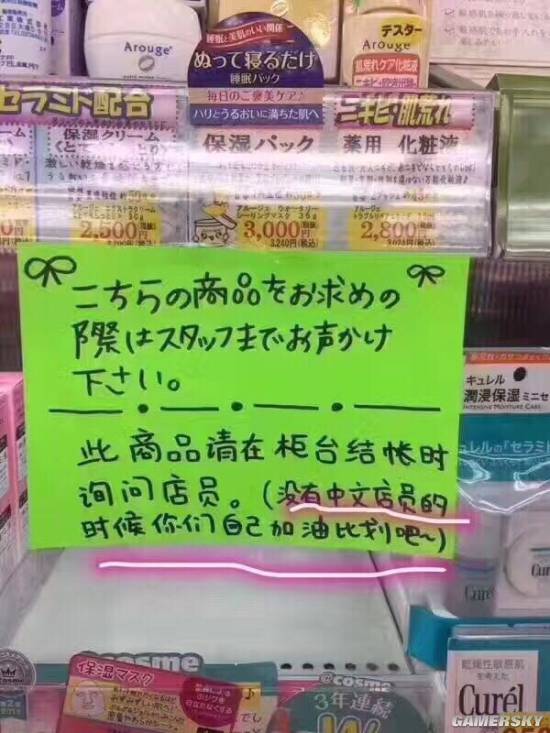 Arouge
Arouge
テスター
睡眠と美肌のいい関係
ぬって寝るだけ
睡眠パック
毎日のご褒美ケア♪
ハリとうるおいに満ちた肌へ
肌荒れケア化粧液
セラミド配合
ニキビ・肌荒れ
保湿クリーム
保湿パック
薬用 化粧液
2,500円
3,000円
3,240円(税込)
2,800円
こちらの商品をお求めの
際はスタッフまでお声かけ
下さい。
此商品请在柜台结帐时
询问店员。(没有中文店员的
时候你们自己加油比划吧~)
キュレル
潤浸保湿 ミニセ
INTENSIVE MOISTURE CARE
Curé
Cur
保湿マスク
cosme
@cosme
3年連続
乾燥性敏感肌
を考えた
Curél
GAMERSKY